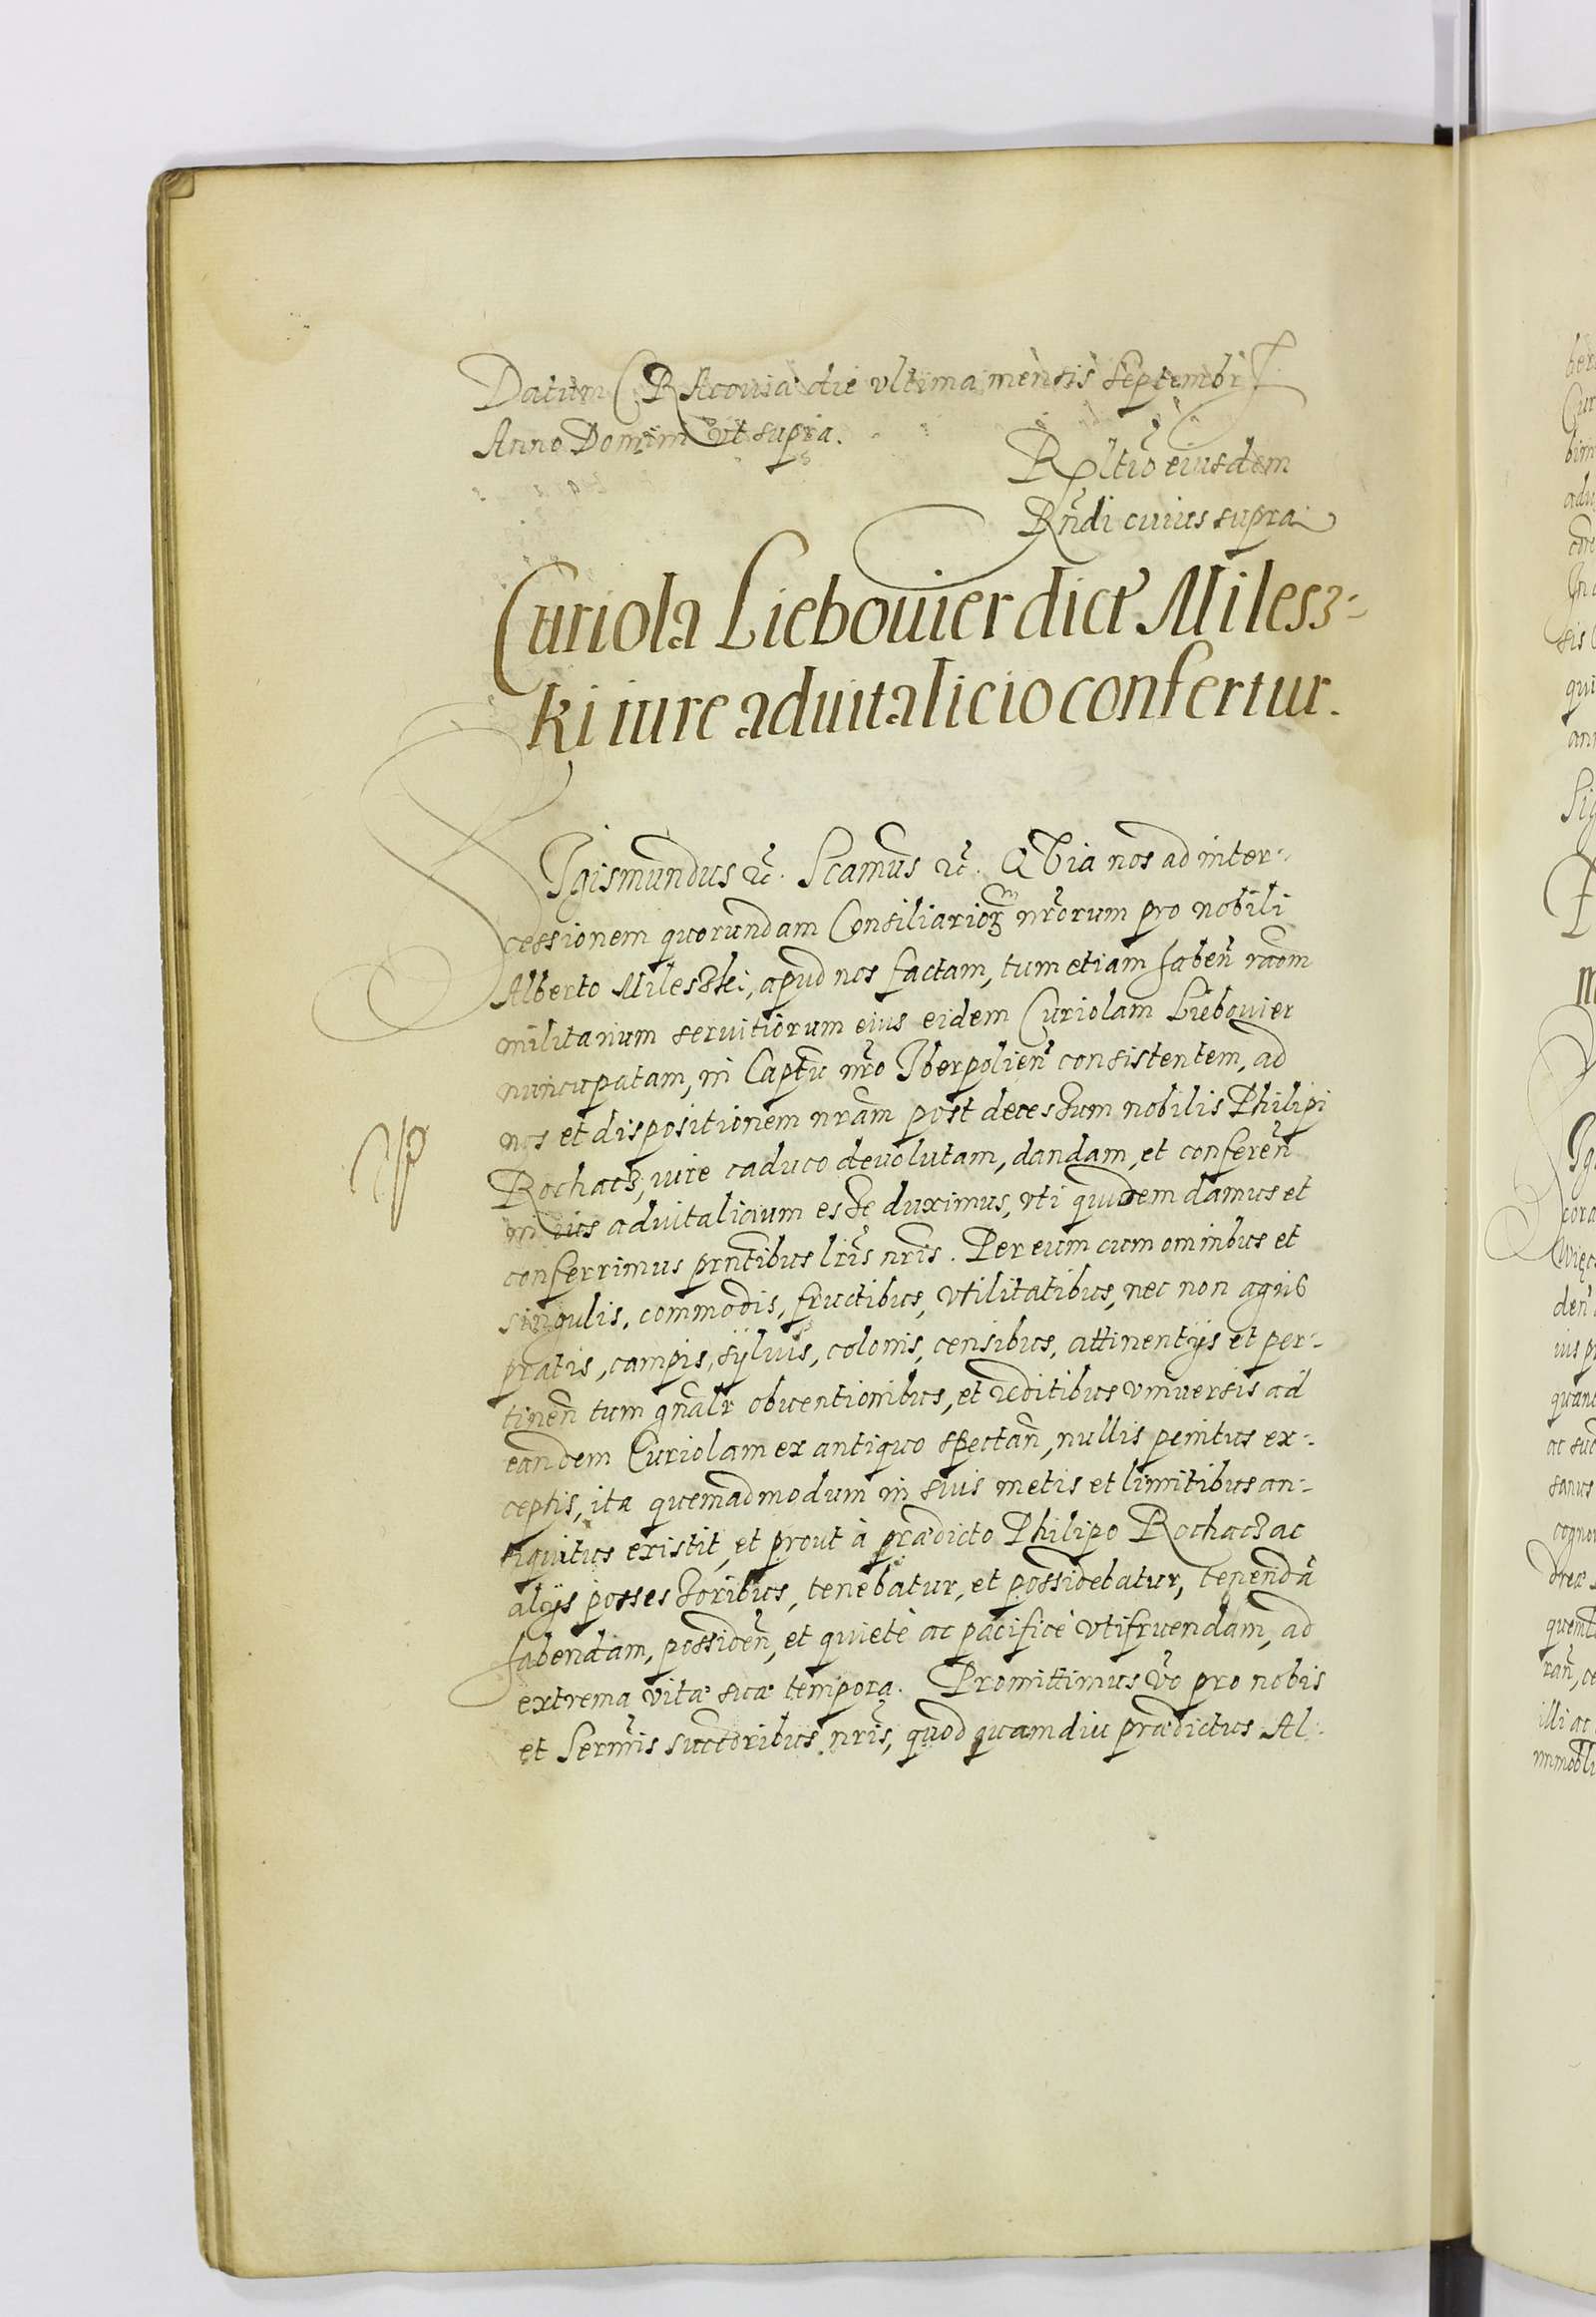 Datum CRacouia die vltima mensis Septembris
Anno Domini vt supra.
Rełtio eiusdem
Rñdi cuius supra
Curiola Liebouier dict Milesz-
ki iure aduitalicio confertur.
SIgismundus &c. Scamus &c. QVia nos ad inter-
cessionem quorundam Consiliarioꝝ nr̃orum pro nobili
Alberto Mileszki, apud nos factam, tum etiam haben̄ rãom
militarium seruitiorum eius eidem Curiolam Liebouier
nuncupatam, in Captũ nr̃o Iberpolien̄ consistentem, ad
nos et dispositionem nram̃ post decessum nobilis Philipi
Rochacz, iure caduco deuolutam, dandam, et conferen̄
in ius aduitalicium esse duximus, vti quidem damus et
conferrimus prñtibus lr̃is nr̃is. Per eum cum omnibus et
singulis, commodis, fructibus, vtilitatibus, nec non agris
pratis, campis, sÿluis, colonis, censibus, attinentÿs et per-
tinen̄ tum gñalr obuentionibus, et reditibus vniuersis ad
eandem Curiolam ex antiquo spectan̄, nullis penitus ex-
ceptis, ita quemadmodum in suis metis et limitibus an-
tiquitus existit, et prout à prædicto Philipo Rochacz ac
alÿs possessoribus, tenebatur, et possidebatur, tenendã
habendam, possiden̄, et quietè ac pacificè vtifruendam, ad
extrema vitæ suæ tempora. Promittimus v̄o pro nobis
et Sermĩs succ̃oribus nr̃is, quod quamdiu prædictus Al-